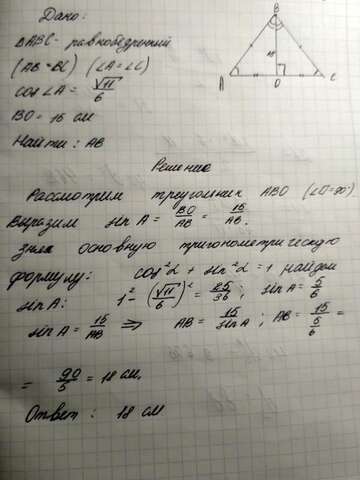 Дано:
△ABC - равнобедренный
(AB = BC) (∠A = ∠C)
cos∠A = √11/6
BO = 15 см
Найти: AB
B
A
O
C
15
Решение
Рассмотрим треугольник ABO (∠O = 90°)
Выразим sin A = BO/AB = 15/AB.
зная основную тригонометрическую
формулу: cos²α + sin²α = 1 найдем
sin A: 1² - (√11/6)² = 25/36; sin A = 5/6
sin A = 15/AB ⇒ AB = 15/sin A; AB = 15/(5/6) =
= 90/5 = 18 см.
Ответ: 18 см